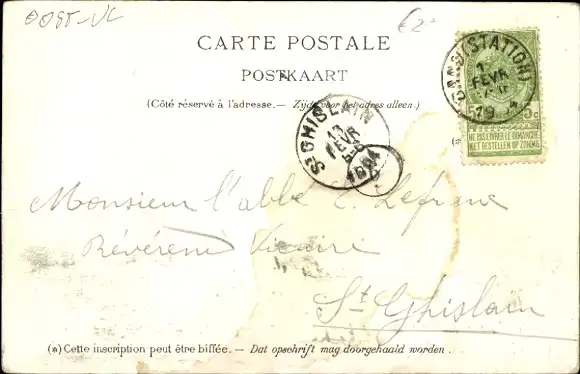 OOST-VL
€2-
CARTE POSTALE
POSTKAART
(Côté réservé à l'adresse. — Zijde voor het adres alleen.)
GAND (STATION)
FEVR
19
5c 5c
NE PAS LIVRER LE DIMANCHE
NIET BESTELLEN OP ZONDAG
ST GHISLAIN
13
FEVR
1901
Monsieur l'abbé E. Lefranc
Révérend Vicaire
St Ghislain
(*) Cette inscription peut être biffée. — Dat opschrift mag doorgehaald worden.